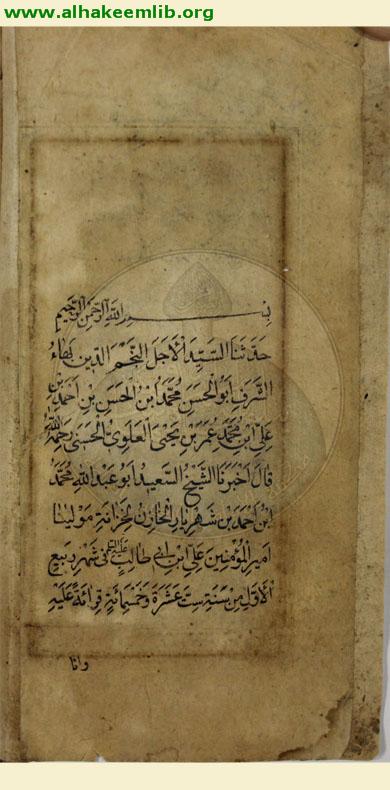 www.alhakeemlib.org
بسم الله الرحمن الرحيم
حَدَّثَنَا السَّيِّدُ الْاَجَلُّ النَّجْمُ الدِّينِ بَهَاءُ
الشَّرَفِ اَبُو الْحَسَنِ مُحَمَّدُ ابْنُ الْحَسَنِ بْنِ اَحْمَدَ بْنِ
عَلِيِّ ابْنِ مُحَمَّدِ عُمَرَ بْنِ يَحْيَى الْعَلَوِيُّ الْحُسَيْنِيُّ رَحِمَهُ اللهُ
قَالَ اَخْبَرَنَا الشَّيْخُ السَّعِيدُ اَبُو عَبْدِ اللهِ مُحَمَّدُ
ابْنُ اَحْمَدَ بْنِ شَهْرِيَارَ الْخَازِنُ لِخِزَانَةِ مَوْلَيْنَا
اَمِيرِ الْمُؤْمِنِينَ عَلِيِّ ابْنِ اَبِي طَالِبٍ فِي شَهْرِ رَبِيعِ
الْاَوَّلِ مِنْ سَنَةِ سِتَّ عَشَرَةَ وَخَمْسِمِائَةٍ قِرَائَةً عَلَيْهِ
وانا